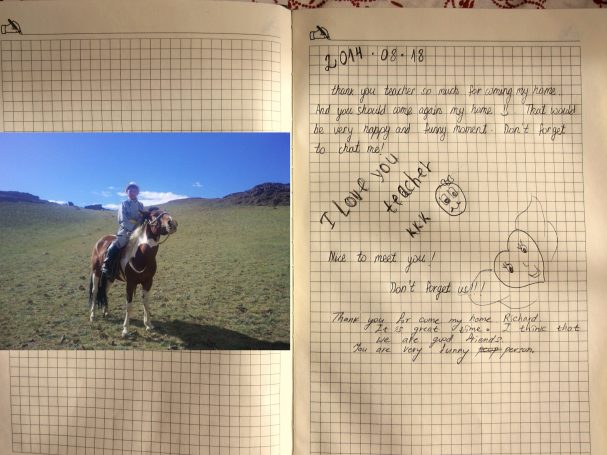 2014.08.18
thank you teacher so much for coming my home.
And you should come again my home :) That would
be very happy and funny moment. Don't forget
to chat me!
I Love you
teacher
KKK
Nice to meet you!
Don't forget us!!!
Thank you for come my home Richard.
It is great time. I think that
we are good friends.
You are very funny person.